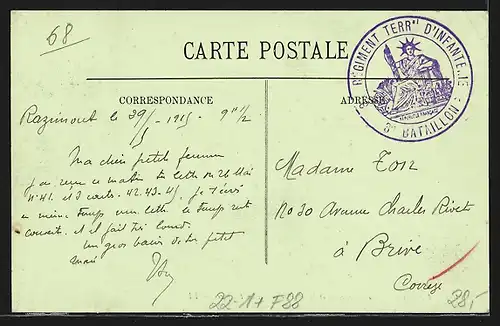 68
CARTE POSTALE
RÉGIMENT TERR D'INFANTERIE
3e BATAILLON
CORRESPONDANCE
ADRESSE
Razimont le 29/5 1915 9h 1/2
Ma chère petite femme
J'ai reçu ce matin ta lettre du 26 Mai
n° 41. et 3 cartes. 42.43.45. Je t'envoie
en même temps une lettre. Le temps est
couvert. et il fait très lourd.
Un gros baiser de ton petit
mari
Madame
No 30 Avenue Charles Rivet
à Brive
Corrèze
22-1+ F88
28,-